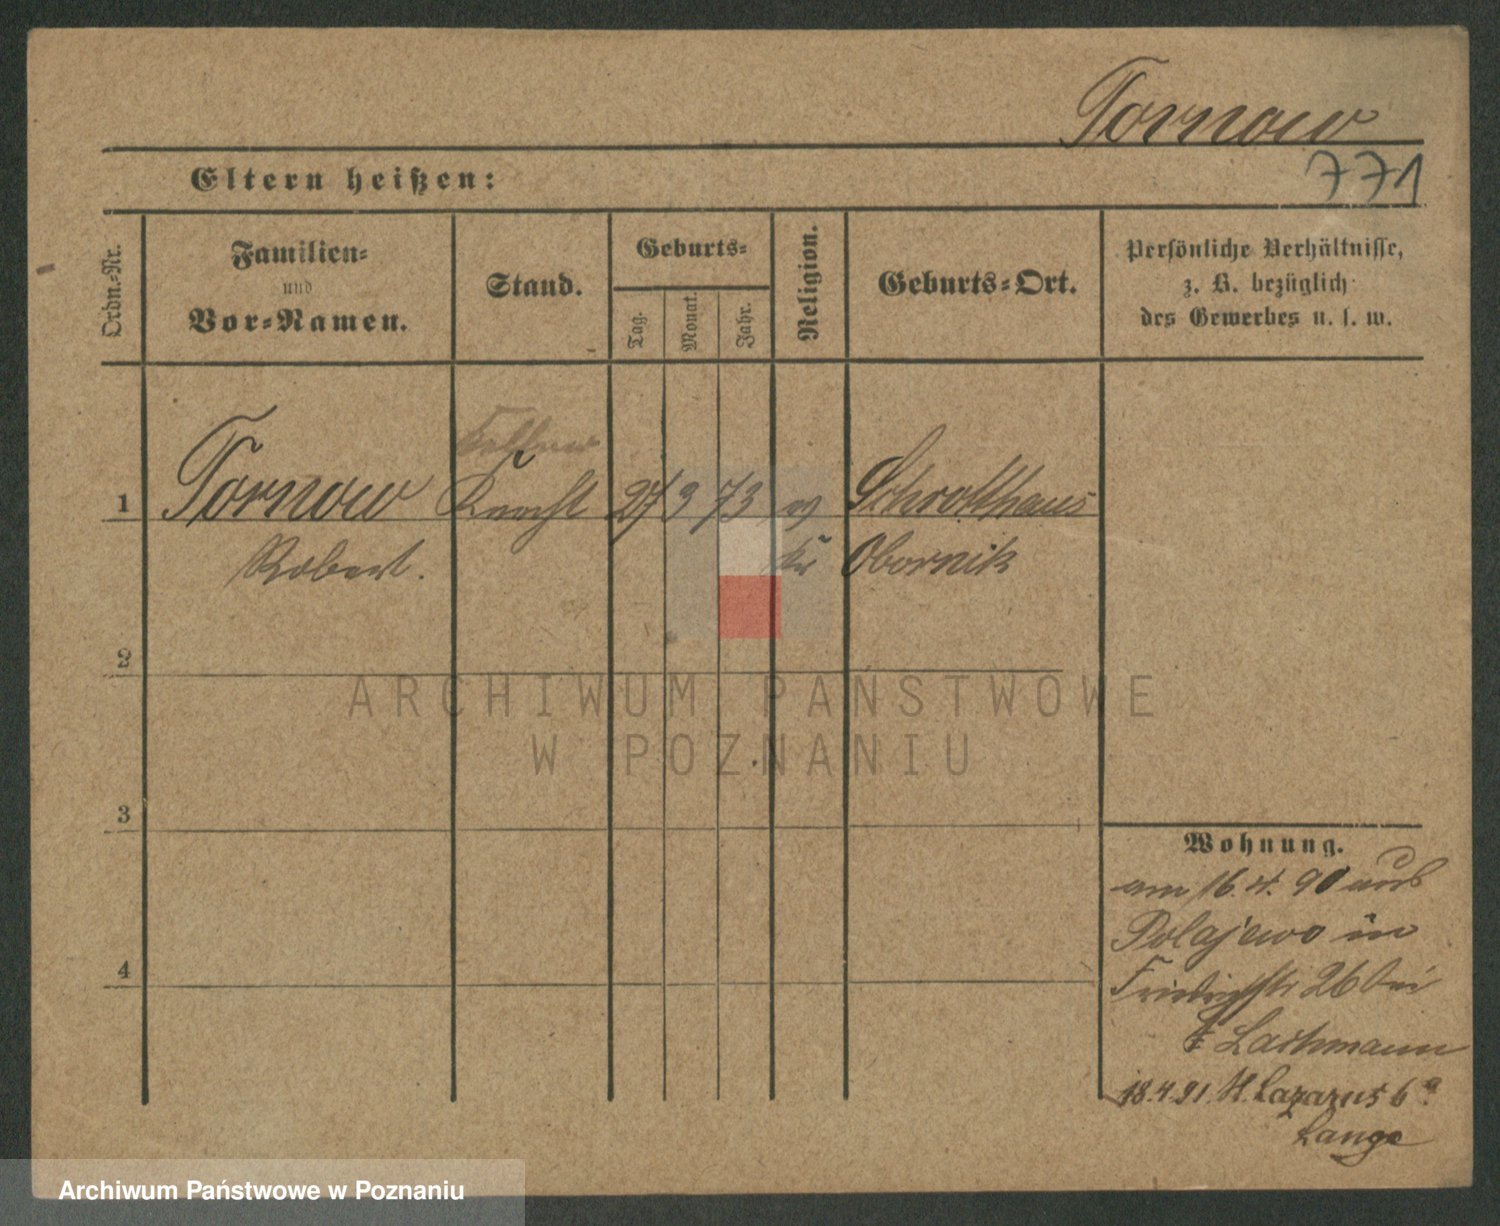 Tornow
771
Eltern heißen:
Ordn.-Nr.
Familien-
und
Vor-Namen.
Stand.
Geburts-
Tag.
Monat.
Jahr.
Religion.
Geburts-Ort.
Persönliche Verhältnisse,
z. B. bezüglich
des Gewerbes u. s. w.
1 Tornow Knecht 27 3 73 ev Schrotthaus
Robert. Kr Obornik
2
3
4
Wohnung.
am 16. 4. 90 aus
Polajewo in
Friedrichstr 26 bei
Lachmann
18.4.91. St. Lazarus 6a
Lange
ARCHIWUM PAŃSTWOWE
W POZNANIU
Archiwum Państwowe w Poznaniu